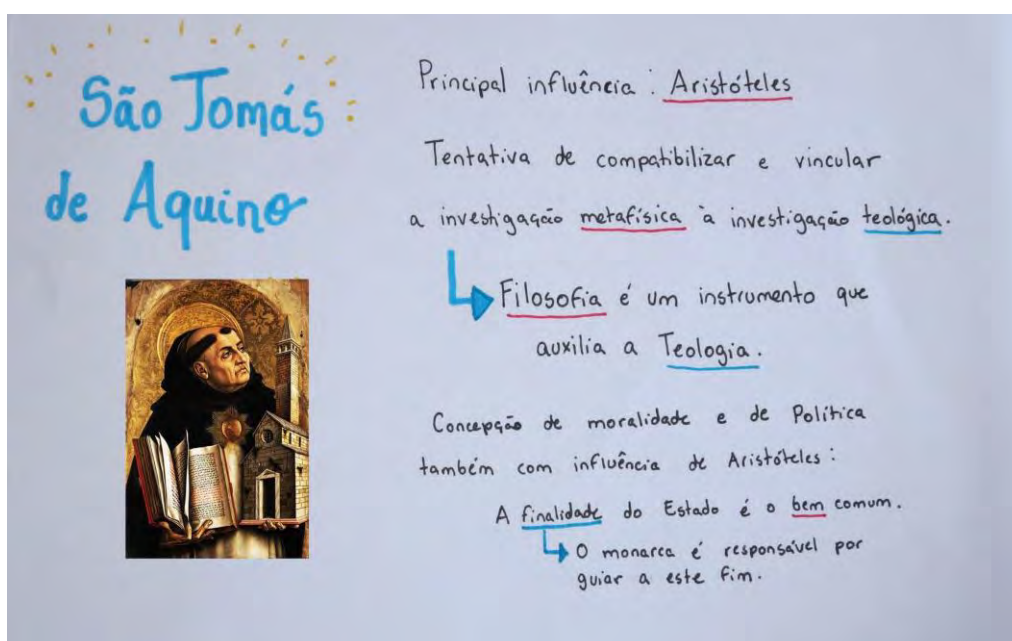 São Tomás
de Aquino
Principal influência : Aristóteles
Tentativa de compatibilizar e vincular
a investigação metafísica à investigação teológica.
Filosofia é um instrumento que
auxilia a Teologia.
Concepção de moralidade e de Política
também com influência de Aristóteles :
A finalidade do Estado é o bem comum.
O monarca é responsável por
guiar a este fim.